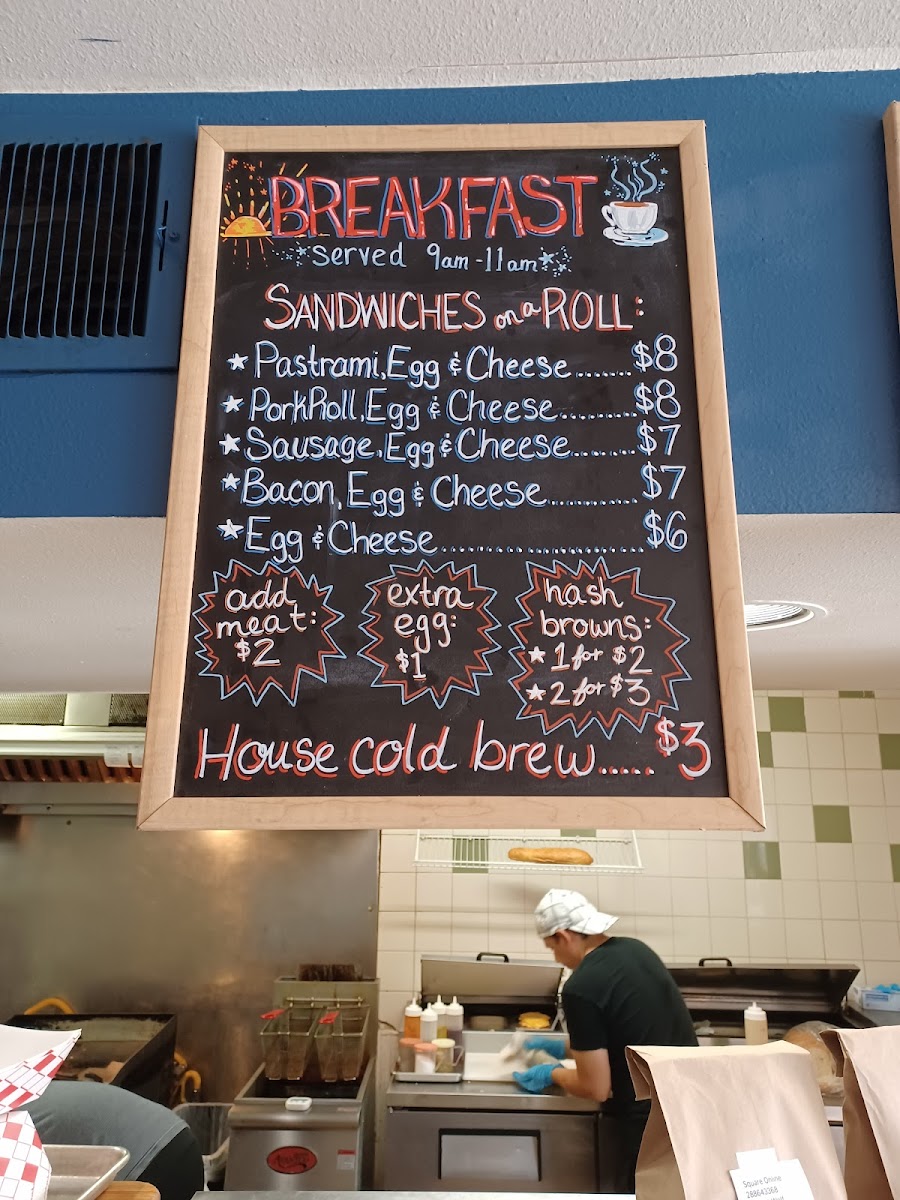 BREAKFAST
served 9am-11am
SANDWICHES on a ROLL:
Pastrami, Egg & Cheese........$8
PorkRoll, Egg & Cheese..........$8
Sausage, Egg & Cheese........$7
Bacon, Egg & Cheese...........$7
Egg & Cheese..........................$6
add
meat:
$2
extra
egg:
$1
hash
browns:
1 for $2
2 for $3
House cold brew.....$3
Square Online
288643368